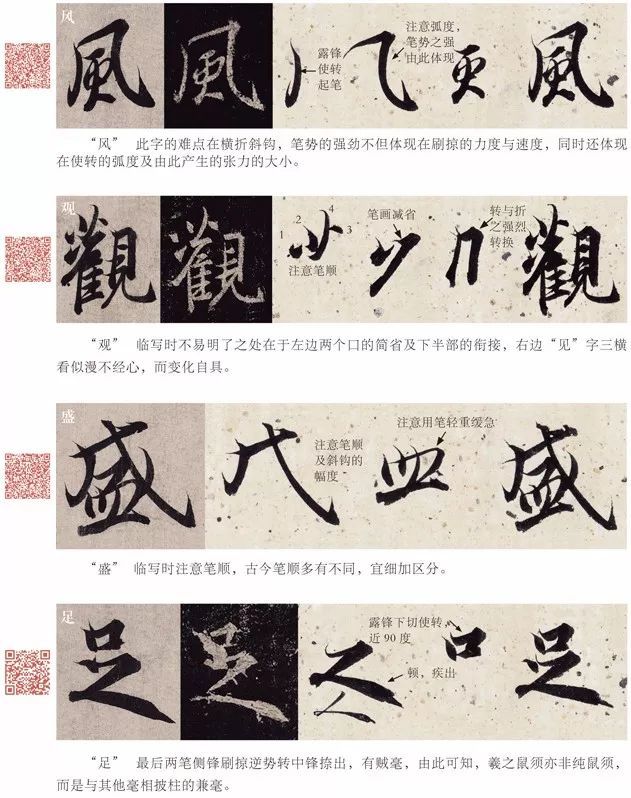 风
風
風
露锋
使转
起笔
注意弧度，
笔势之强
由此体现
風
“风” 此字的难点在横折斜钩，笔势的强劲不但体现在刷掠的力度与速度，同时还体现
在使转的弧度及由此产生的张力的大小。
观
觀
觀
1
2
3
4
注意笔顺
笔画减省
转与折
之强烈
转换
觀
“观” 临写时不易明了之处在于左边两个口的简省及下半部的衔接，右边“见”字三横
看似漫不经心，而变化自具。
盛
盛
注意笔顺
及斜钩的
幅度
注意用笔轻重缓急
皿
盛
“盛” 临写时注意笔顺，古今笔顺多有不同，宜细加区分。
足
足
足
露锋下切使转，
近 90 度
顿，疾出
口
足
“足” 最后两笔侧锋刷掠逆势转中锋捺出，有贼毫，由此可知，羲之鼠须亦非纯鼠须，
而是与其他毫相披柱的兼毫。